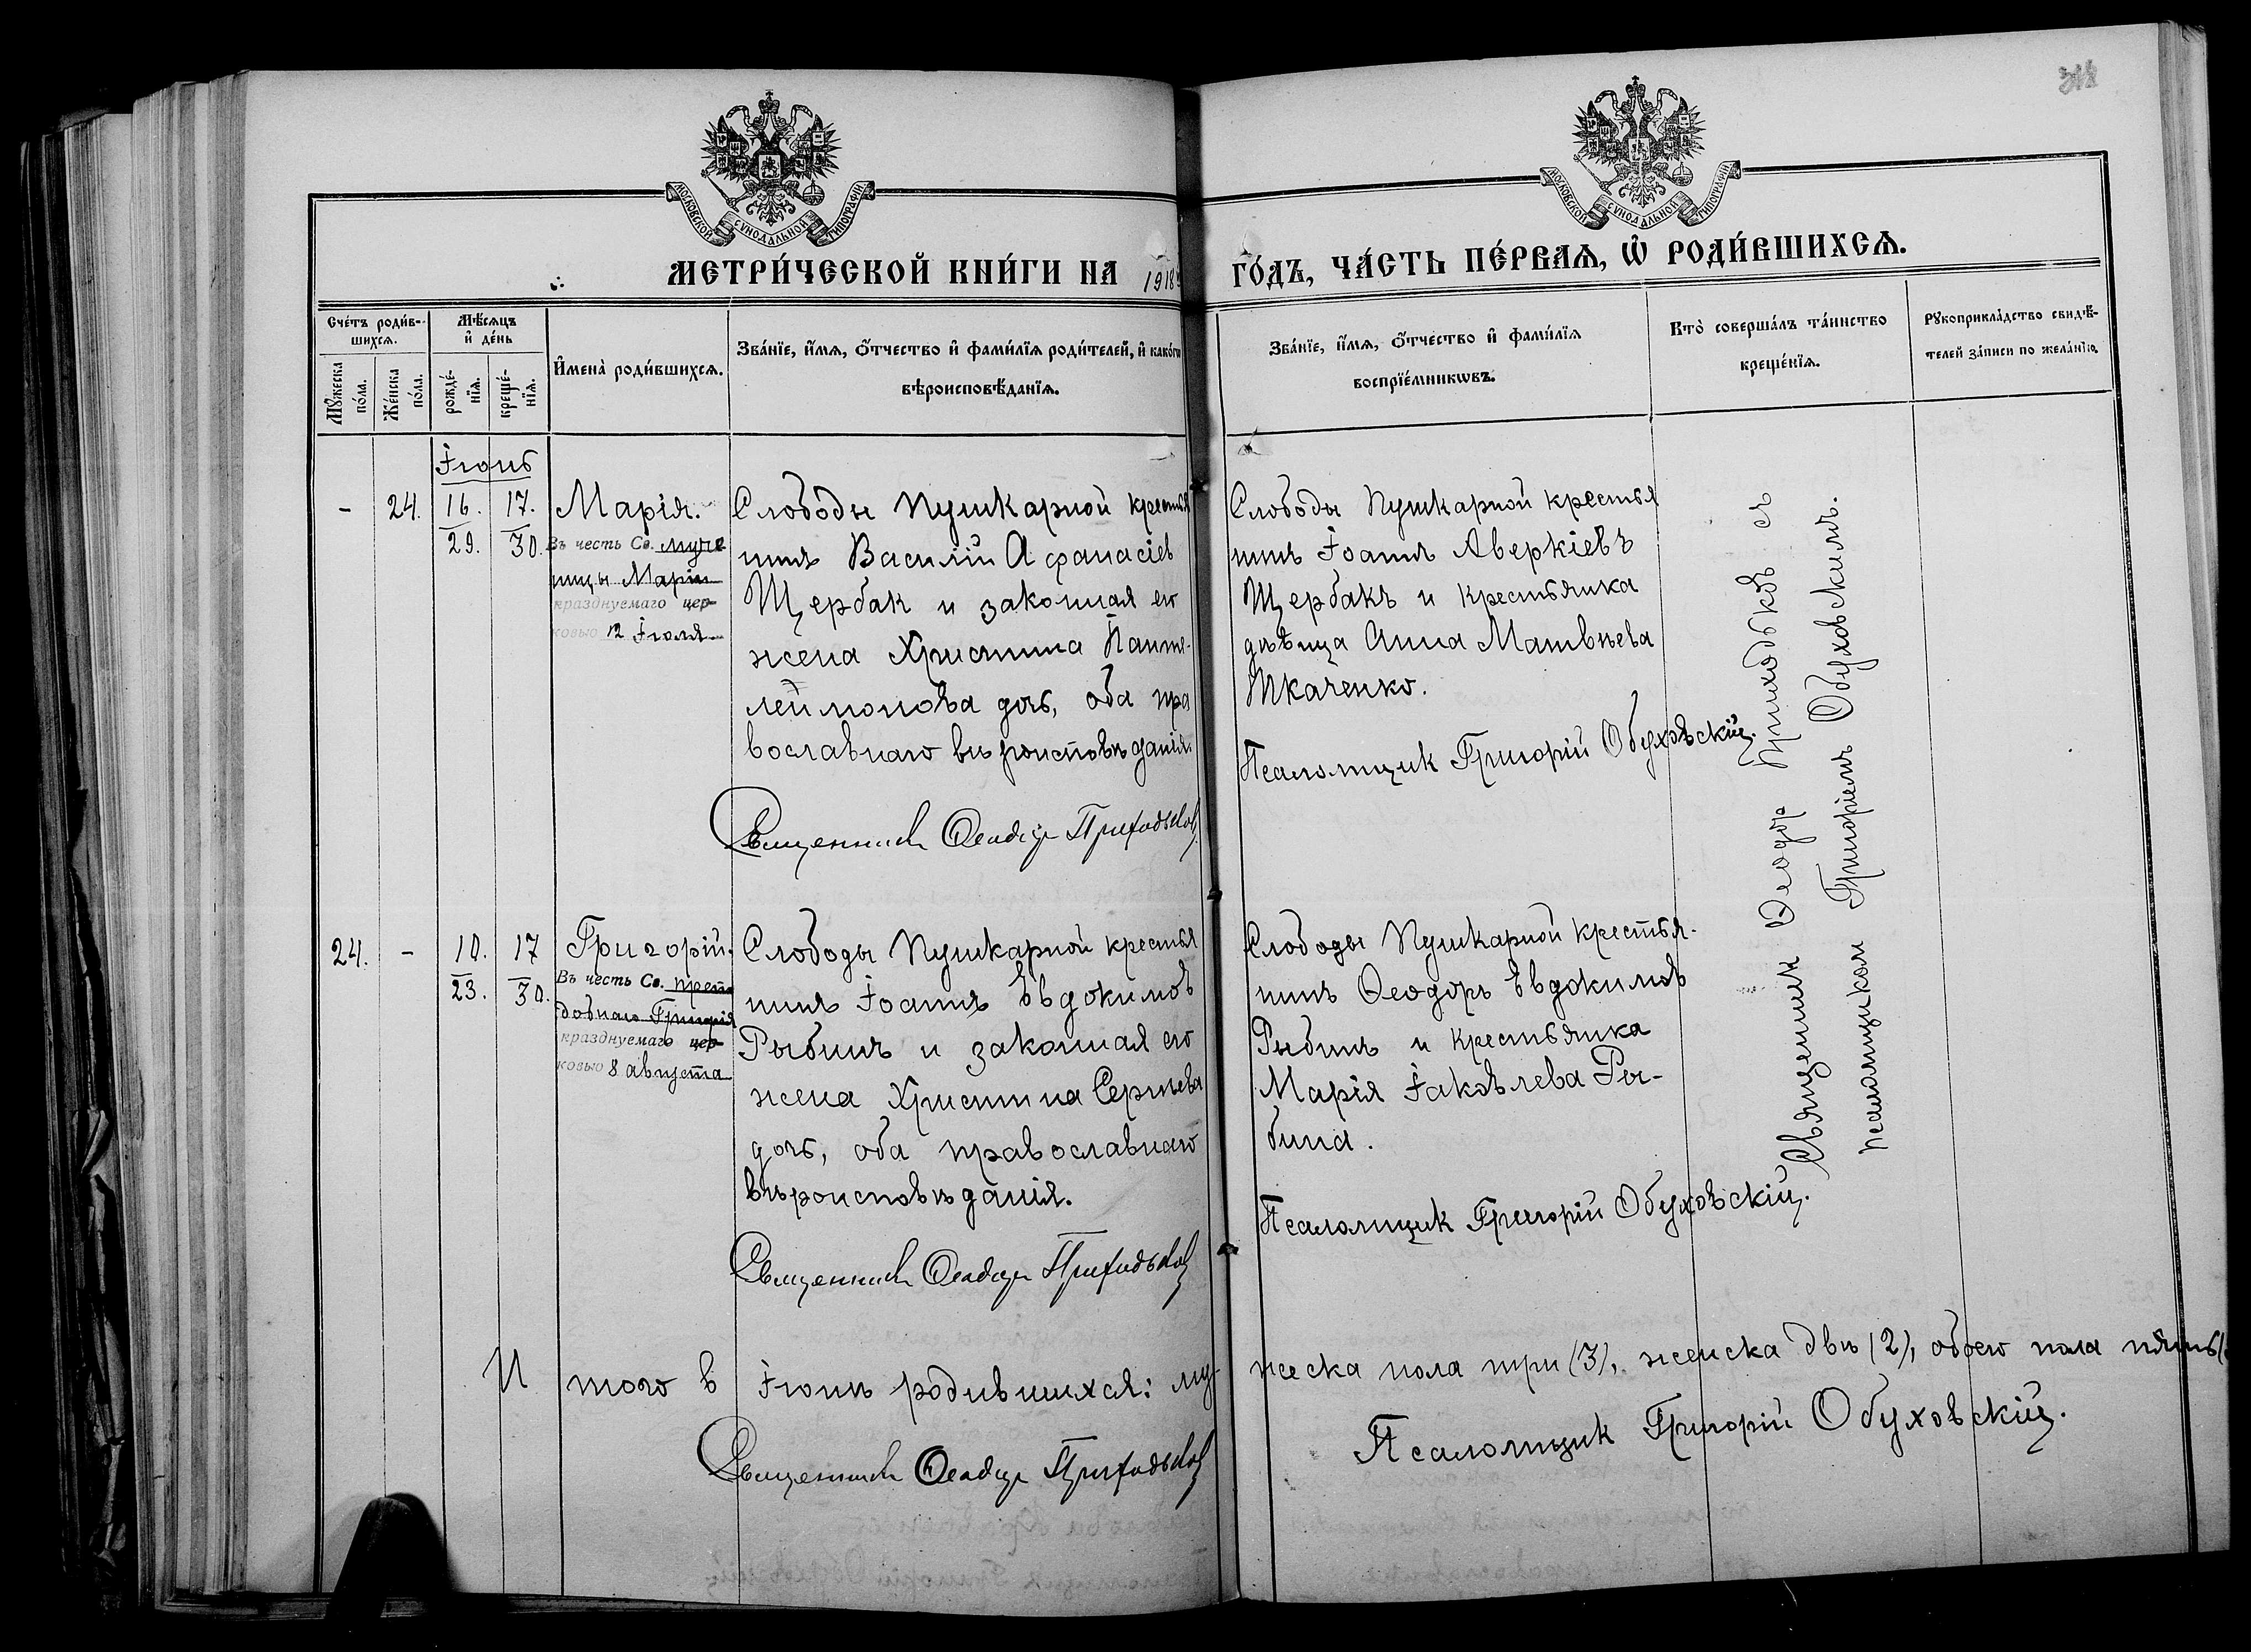 318
МОСКОВСКОЙ СѴНОДАЛЬНОЙ ТИПОГРАФІИ
МОСКОВСКОЙ СѴНОДАЛЬНОЙ ТИПОГРАФІИ
МЕТРИ́ЧЕСКОЙ КНИ́ГИ НА 1918
ГО́ДЪ, ЧА́СТЬ ПЕ́РВАѦ, Ѡ҆ РОДИ́ВШИХСѦ.
Сче́тъ роди́в-
шихсѧ.
Мꙋ́жеска
по́ла.
Же́нска
по́ла.
Мѣ́сѧцъ
и҆ де́нь
рожде́-
нїѧ.
креще́-
нїѧ.
И҆мена̀ роди́вшихсѧ.
Зва́нїе, и҆́мѧ, ѻ҆́тчество и҆ фами́лїѧ роди́телей, и҆ како́гѡ
вѣроисповѣ́данїѧ.
Зва́нїе, и҆́мѧ, ѻ҆́тчество и҆ фами́лїѧ
воспрїе́мникѡвъ.
Кто̀ соверша́лъ та́инство
креще́нїѧ.
Рꙋкоприкла́дство свидѣ́-
телей за́писи по жела́нїю.
Іюнь
- 24. 16. 17. Марія.
29. 30. Въ честь Св. муче
ницы Маріи
празднуемаго цер-
ковью 12 Іюля
Слободы Пушкарной крестья
нинъ Василій Афанасіев
Щербак и законная его
жена Христина Панте-
леймонова дочь, оба пра
вославнаго вѣроисповѣданія.
Священникъ Ѳеодоръ Приходьков
Слободы Пушкарной крестья
нинъ Іоаннъ Аверкіевъ
Щербакъ и крестьянка
дѣвица Анна Матвѣева
Ткаченко.
Псаломщик Григорій Обуховскій.
Священник Ѳеодор Приходьков съ
псаломщиком Григоріемъ Обуховскимъ.
24. - 10. 17 Григорій.
23. 30. Въ честь Св. препо
добнаго Григорія
празднуемаго цер-
ковью 8 августа
Слободы Пушкарной крестья
нинъ Іоаннъ Евдокимов
Рыбинъ и законная его
жена Христина Сергѣева
дочь, оба православнаго
вѣроисповѣданія.
Священникъ Ѳеодоръ Приходьков
Слободы Пушкарной крестья-
нинъ Ѳеодоръ Евдокимов
Рыбинъ и крестьянка
Марія Іаковлева Ры-
бина.
Псаломщик Григорій Обуховскій.
Итого в Іюнѣ родившихся: му-
жеска пола три (3), женска двѣ (2), обоего пола пять
Священникъ Ѳеодоръ Приходьков
Псаломщик Григорій Обуховскій.